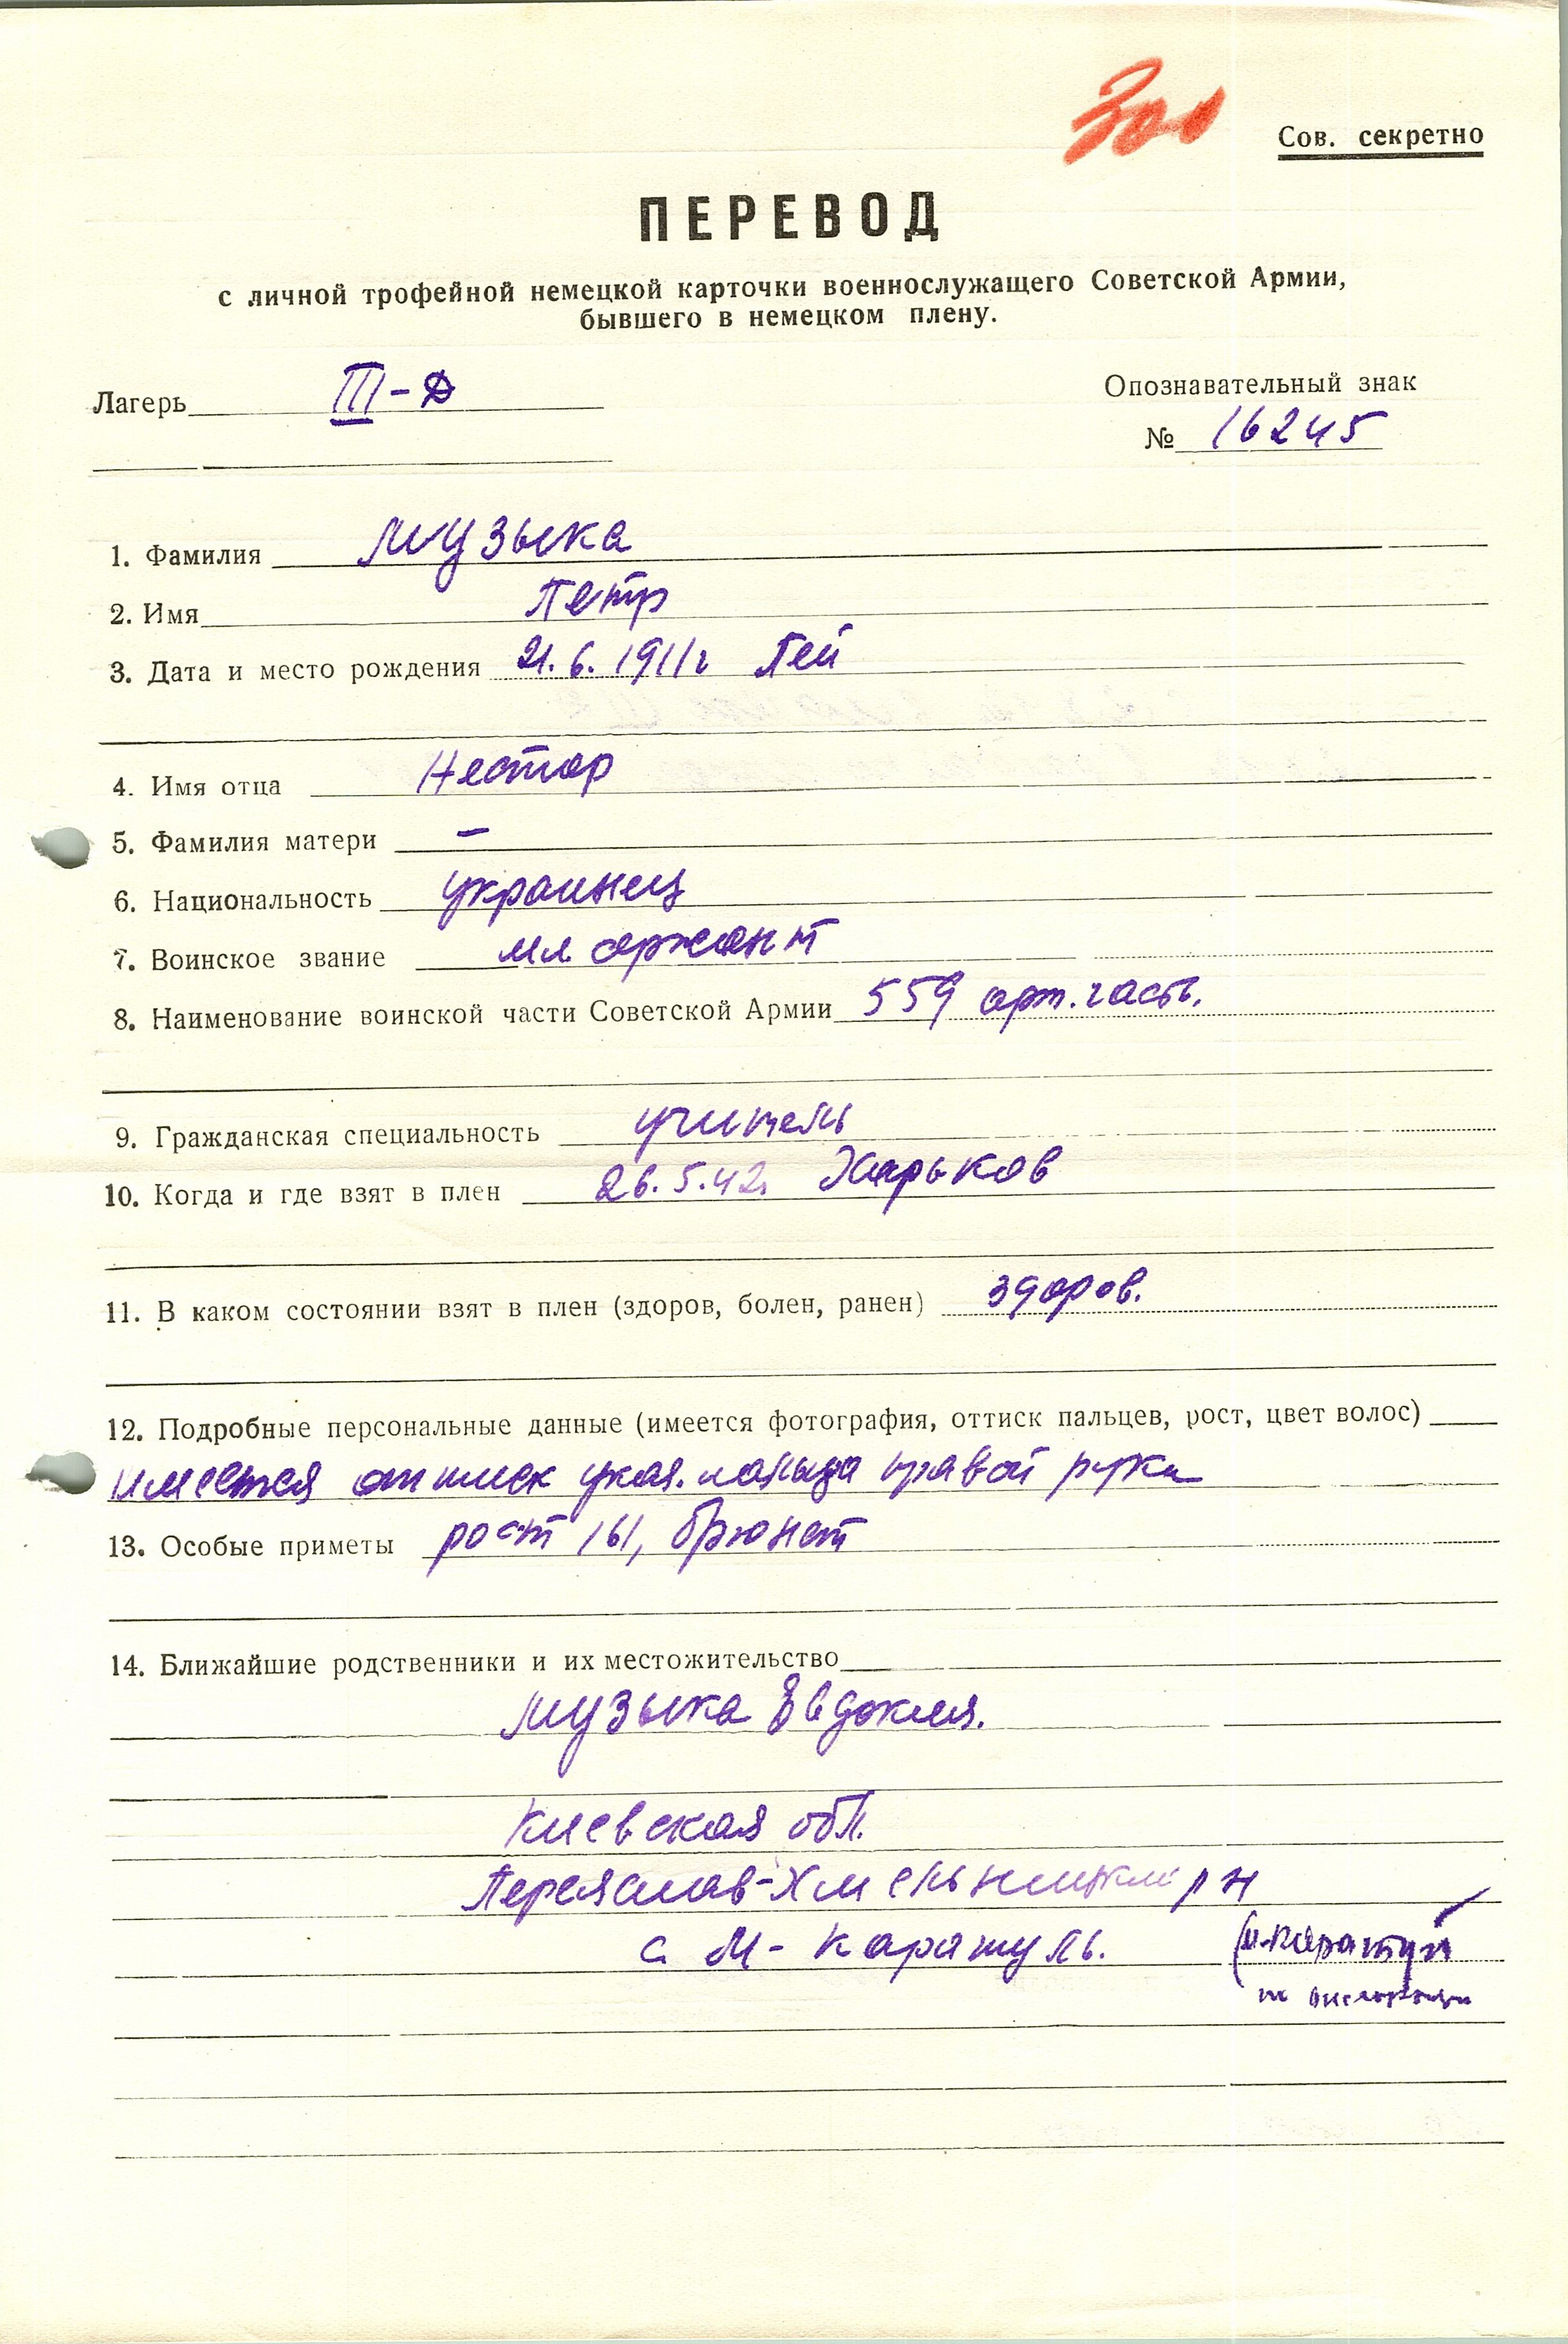 300
Сов. секретно
ПЕРЕВОД
с личной трофейной немецкой карточки военнослужащего Советской Армии,
бывшего в немецком плену.
Лагерь III-Д
Опознавательный знак
№ 16245
1. Фамилия Музыка
2. Имя Петр
3. Дата и место рождения 21.6.1911г Пей
4. Имя отца Нестор
5. Фамилия матери –
6. Национальность украинец
7. Воинское звание мл. сержант
8. Наименование воинской части Советской Армии 559 арт. часть.
9. Гражданская специальность учитель
10. Когда и где взят в плен 26.5.42. Харьков
11. В каком состоянии взят в плен (здоров, болен, ранен) здоров.
12. Подробные персональные данные (имеется фотография, оттиск пальцев, рост, цвет волос)
имеется оттиск указ. пальца правой руки
13. Особые приметы рост 161, брюнет
14. Ближайшие родственники и их местожительство
Музыка Евдокия.
Киевская обл.
Переяслав-Хмельницкий рн
с. М-Каратуль. (М-Каратул